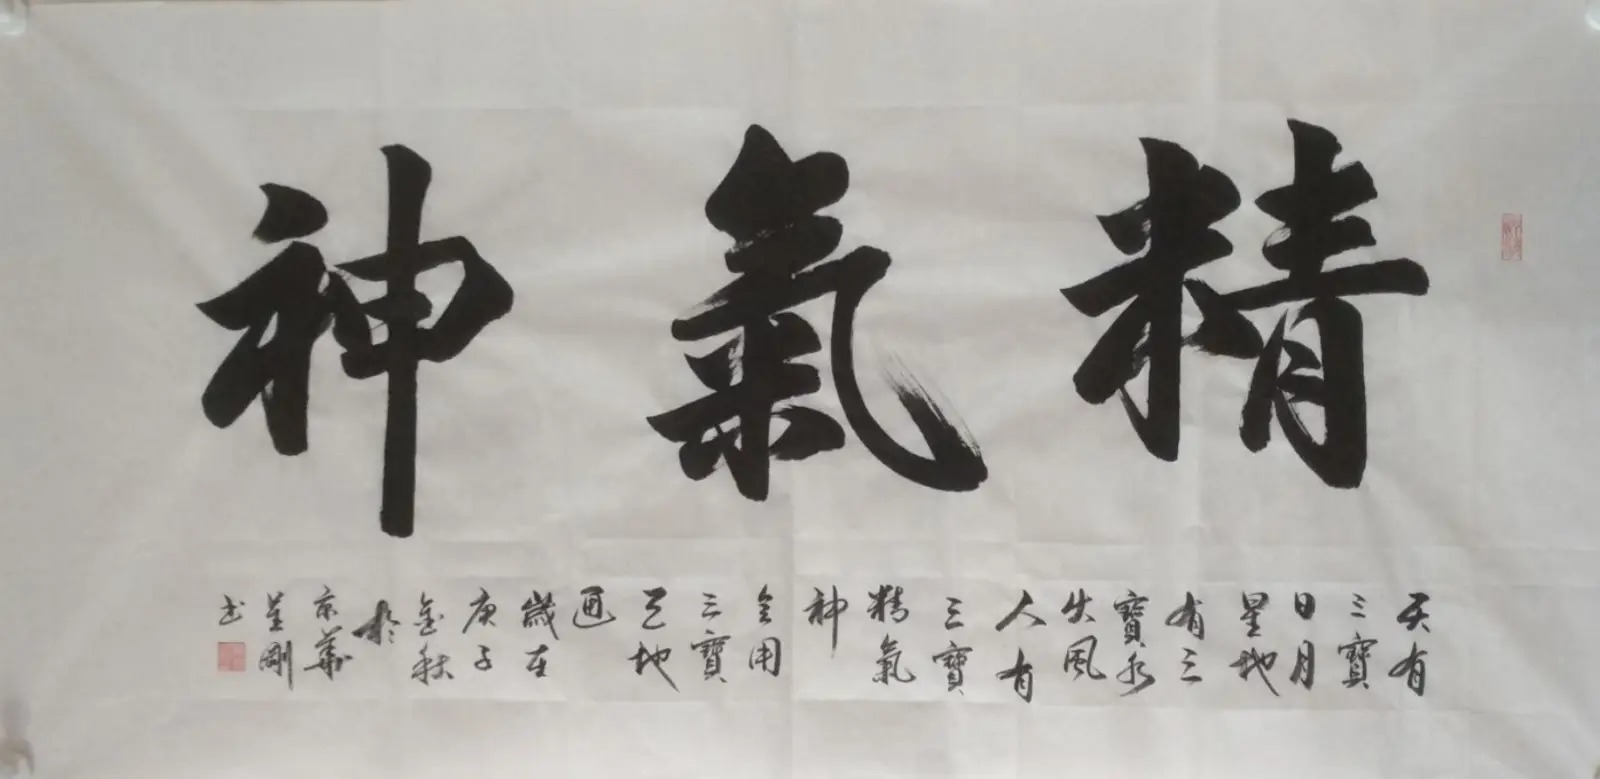 精氣神
天有
三寶
日月
星地
有三
寶水
火風
人有
三寶
精氣
神
用
三寶
天地
通
歲在
庚子
金秋
於
京華
剛
书